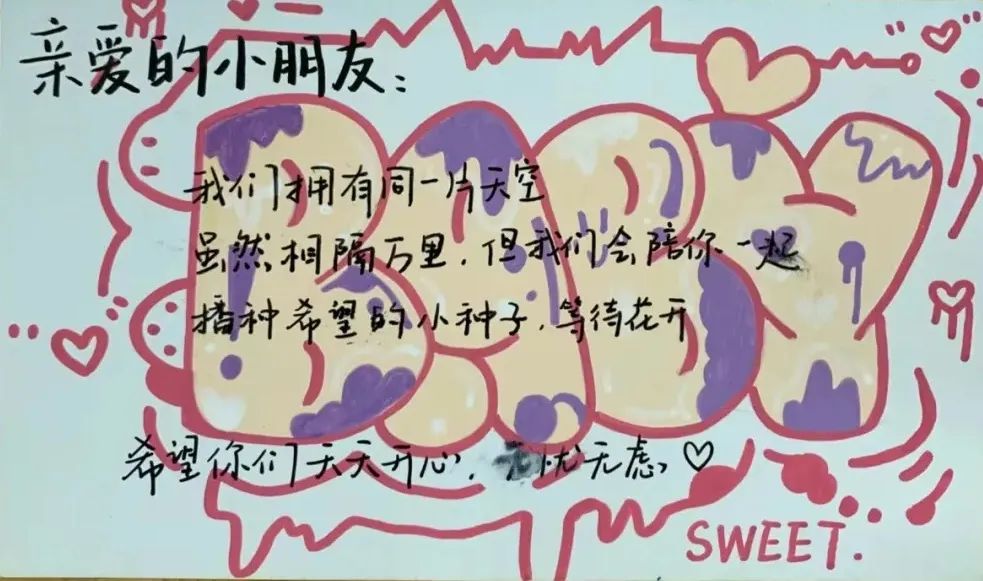 亲爱的小朋友：
我们拥有同一片天空
虽然相隔万里，但我们会陪你一起
播种希望的小种子，等待花开
希望你们天天开心，无忧无虑♡
BABY
SWEET.